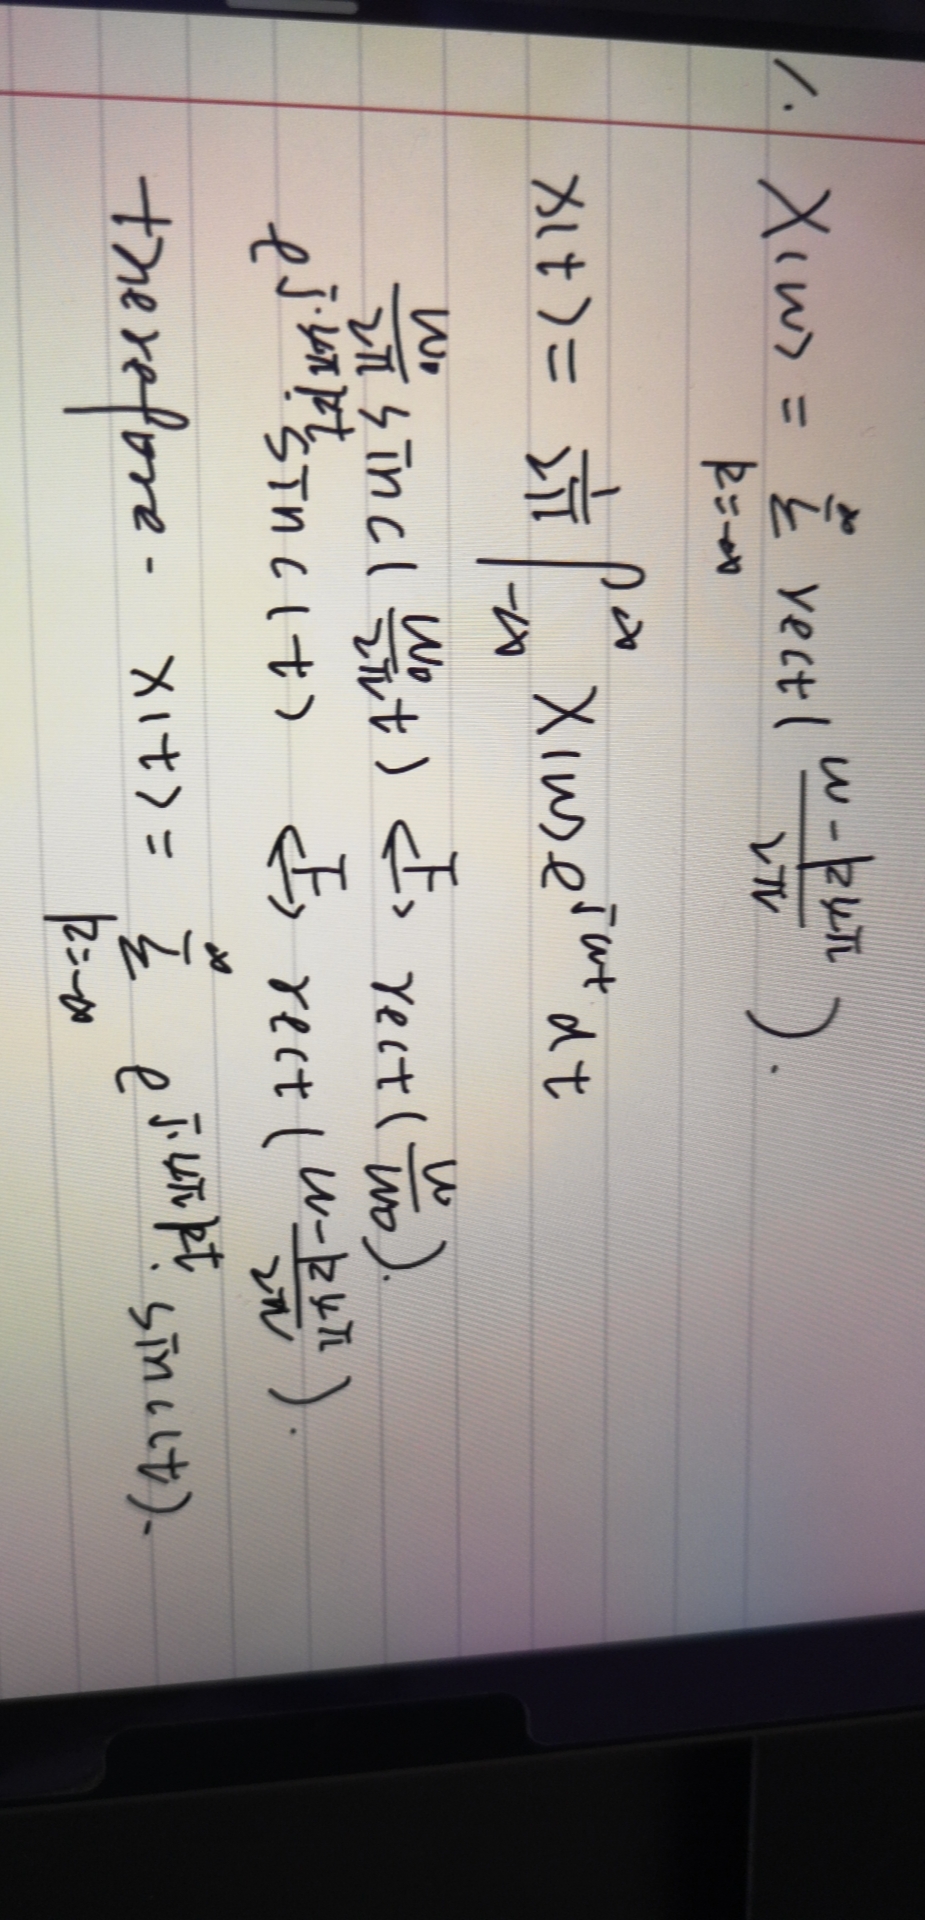 1. X(ω) = ∑_{k=-∞}^{∞} rect( (ω - k4π) / 2π ).
x(t) = 1/2π ∫_{-∞}^{∞} X(ω) e^{jωt} dt
ω₀/2π sinc( ω₀/2π t ) <-F-> rect( ω/ω₀ ).
e^{j·4πkt} · sinc(t) <-F-> rect( (ω - k4π) / 2π ).
therefore. x(t) = ∑_{k=-∞}^{∞} e^{j·4πkt} · sinc(t).